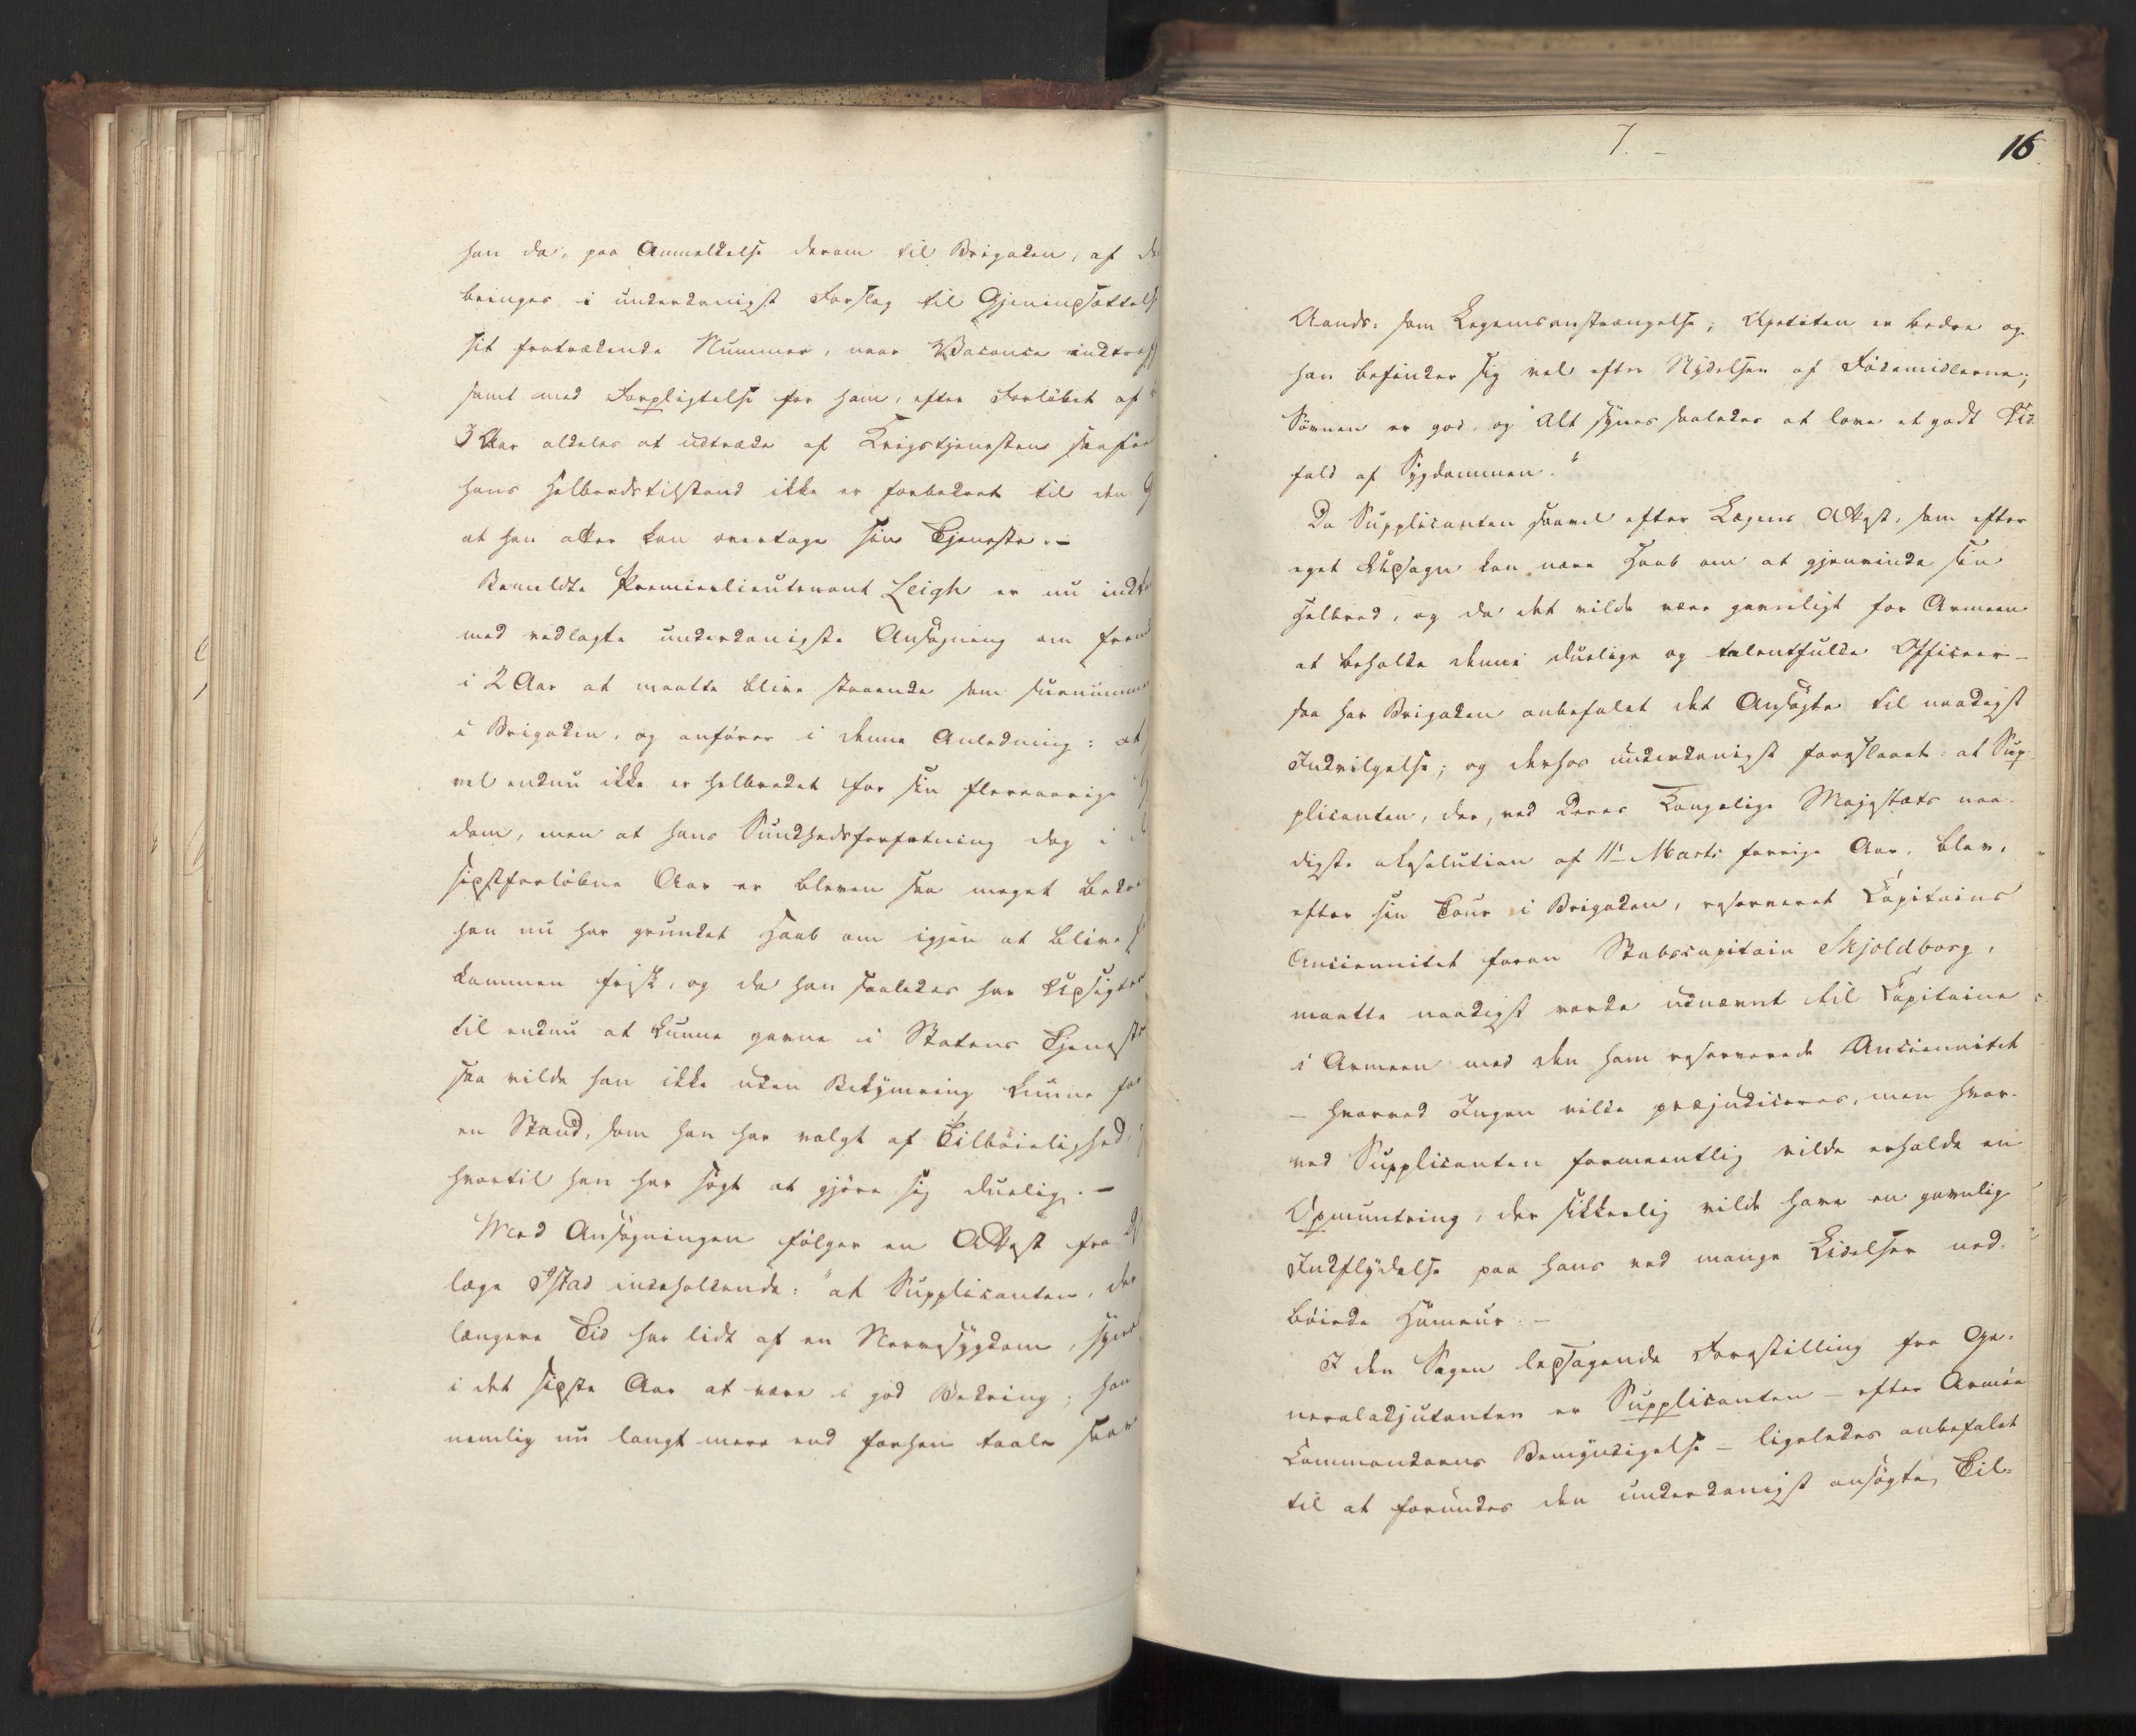 han da, paa Anmeldelse derom til Brigaden, af de
bringes i underdanigst Forslag til Gjenindsættelse
sit fratrædende Nummer, naar Vacance indtræff
samt med Forpligtelse for ham, efter Forløbet af
3 Aar aldeles at udtræde af Krigstjenesten saafre
hans Helbredstilstand ikke er forbedret til den G
at han atter kan overtage sin Tjeneste. –
Bemeldte Premierlieutenant Leigh er nu indk
med vedlagte underdanigste Ansøgning om frem
i 2 Aar at maatte blive staaende som surnumme
i Brigaden, og anfører i denne Anledning: at
vel endnu ikke er helbredet for sin fleeraarige
dom, men at hans Sundhedsforfatning dog i
sidstforløbne Aar er bleven saa meget bedre
han nu har grundet Haab om igjen at blive
kommen frisk, og da han saaledes har Udsigter
til endnu at kunne gavne i Statens Tjeneste
saa vilde han ikke uden Bekymring kunne for
en Stand, som han har valgt af Tilbøielighed,
hvortil han har søgt at gjøre sig duelig. –
Med Ansøgningen følger en Attest fra
læge Ystad indeholdende: "at Supplicanten, der
længere Tid har lidt af en Nervesygdom, synes
i det sidste Aar at være i god Bedring; han
nemlig nu langt mere end forhen taale saav
7. –
16
Aands- som Legemsanstrængelse; Apetiten er bedre og
han befinder sig vel efter Nydelsen af Fødemidlerne;
Søvnen er god, og Alt synes saaledes at love et godt Ud-
fald af Sygdommen."
Da Supplicanten saavel efter Lægens Attest, som efter
eget Udsagn kan nære Haab om at gjenvinde sin
Helbred, og da det vilde være gavnligt for Armeen
at beholde denne duelige og talentfulde Officeer –
saa har Brigaden anbefalet det Ansøgte til naadigst
Indvilgelse; og derhos underdanigst foreslaaet: at Sup-
plicanten, der, ved Deres Kongelige Majestæts naa-
digste Resolution af 11te Marts forrige Aar, blev,
efter sin Tour i Brigaden, reserveret Capitains
Anciennitet foran Stabscapitain Skjoldborg,
maatte naadigst vorde udnævnt til Capitaine
i Armeen med den ham reserverede Anciennitet
– hvorved Ingen vilde præjudiceres, men hvor-
ved Supplicanten formeentlig vilde erholde en
Opmuntring, der sikkerlig vilde have en gavnlig
Indflydelse paa hans ved mange Lidelser ned-
bøiede Humeur. –
I den Sagen ledsagende Forestilling fra Ge-
neraladjutanten er Supplicanten – efter Armée
Commandoens Bemyndigelse – ligeledes anbefalet
til at forundes den underdanigst ansøgte Til-